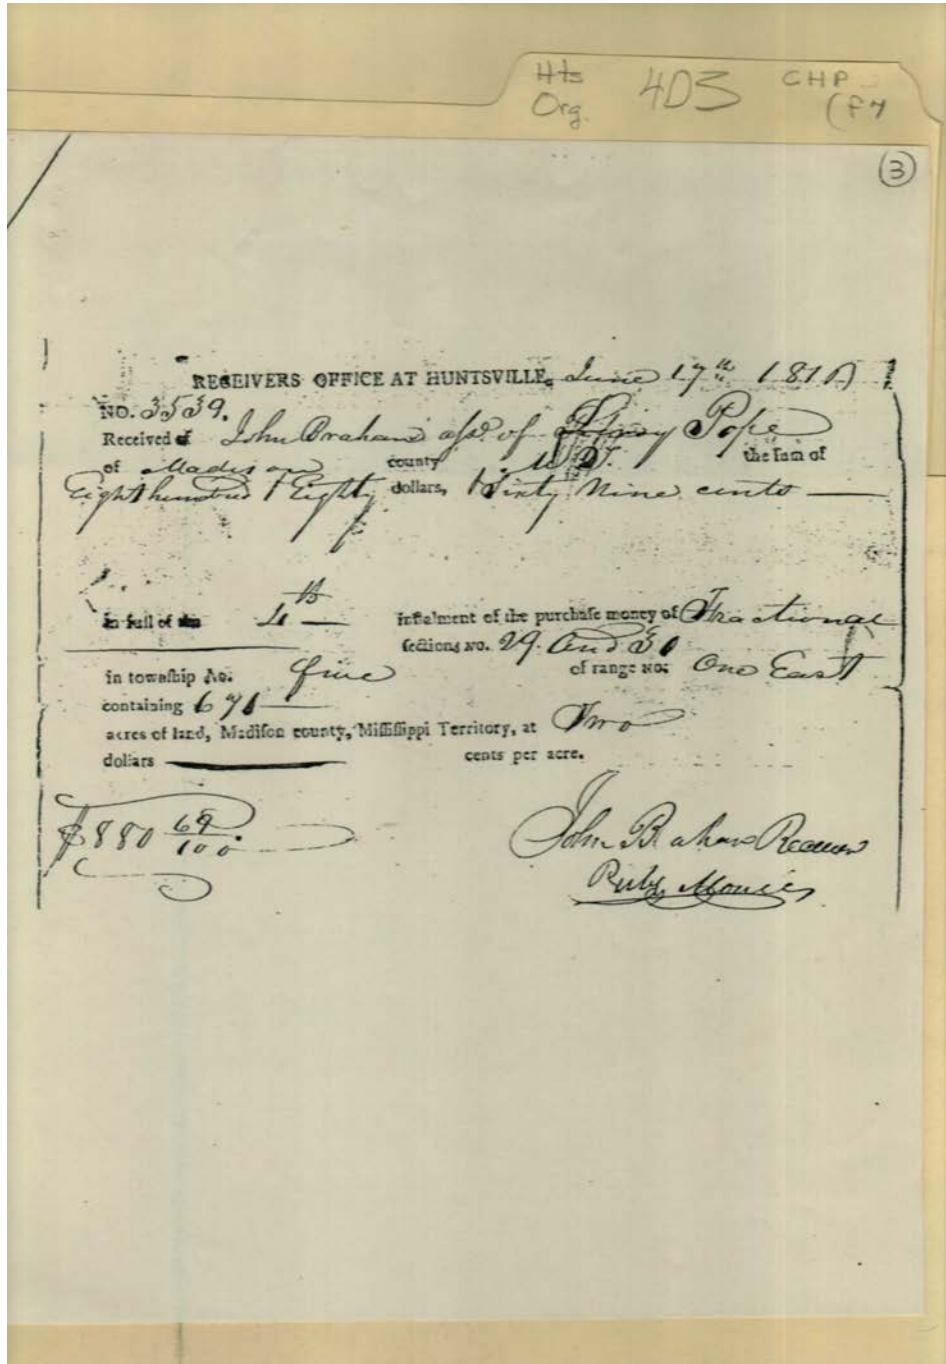 Hts 403 CHP
Org. (F7
3
RECEIVERS OFFICE AT HUNTSVILLE, June 17th 181
NO. 3539.
Received of John Braham assee. of Pope
of Madison county M.T. the sum of
Eight hundred & Eighty dollars, & Sixty Nine cents
in full of the 4th instalment of the purchase money of Fractional
sections no. 29. and 30
in township No. five of range no: One East
containing
acres of land, Madison county, Mississippi Territory, at Two
dollars cents per acre.
$880 69/100 John Braham Receiver
Public Monies